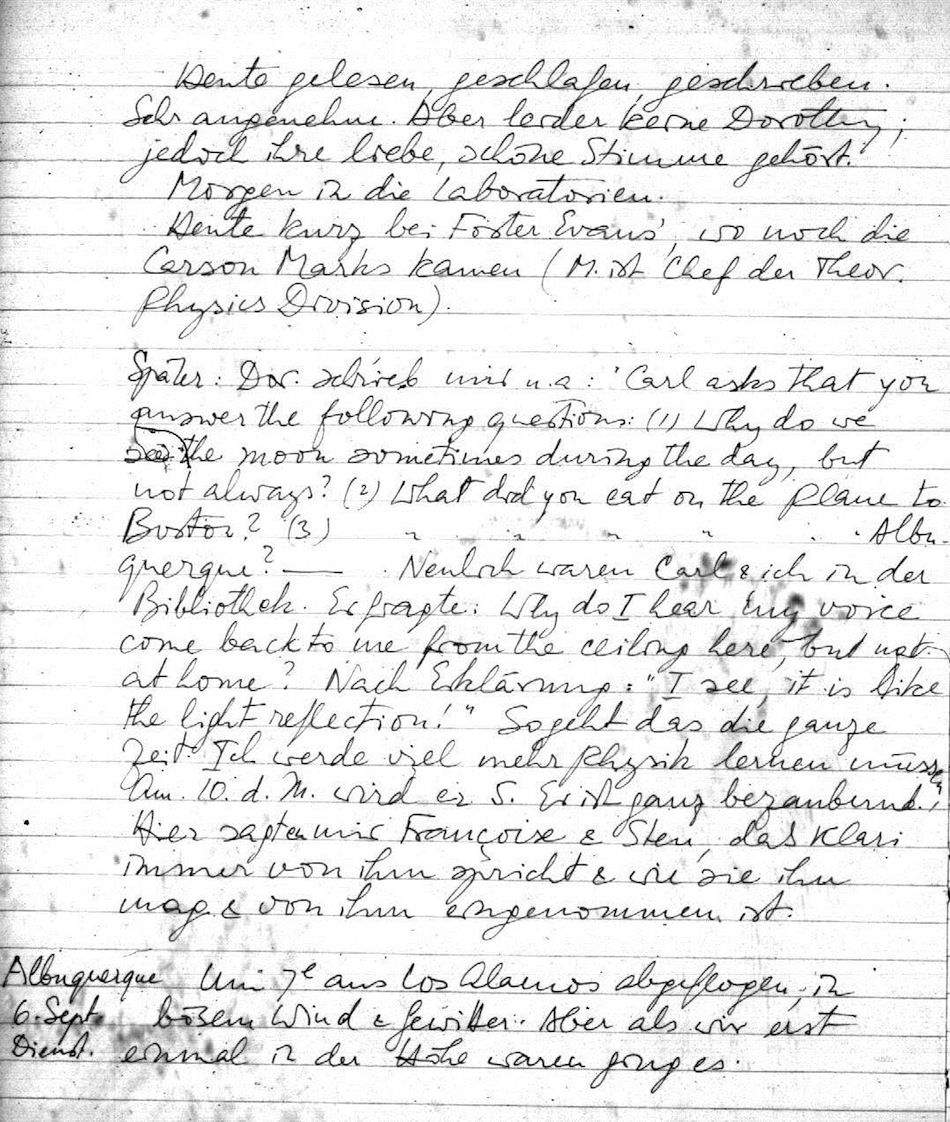 Heute gelesen, geschlafen, geschrieben.
Sehr angenehm. Aber leider keine Dorothy;
jedoch ihre liebe, schöne Stimme gehört.
Morgen in die Laboratorien.
Heute kurz bei Foster Evans', wo noch die
Carson Marks kamen (M. ist Chef der Theor.
Physics Division).
Später: Dor. schrieb mir u.a: 'Carl asks that you
answer the following questions: (1) Why do we
see the moon sometimes during the day, but
not always? (2) What did you eat on the plane to
Boston? (3) " " " " " " Albu-
querque? — Neulich waren Carl & ich in der
Bibliothek. Er fragte: Why do I hear my voice
come back to me from the ceiling here, but not
at home? Nach Erklärung: "I see, it is like
the light reflection!" So geht das die ganze
Zeit. Ich werde viel mehr Physik lernen müssen.
Am 10. d. M. wird er 5. Er ist ganz bezaubernd.
Hier sagten mir Françoise & Stan, das Klari
immer von ihm spricht & wie sie ihn
mag & von ihm eingenommen ist.
Albuquerque Um 7e aus Los Alamos abgeflogen, in
6. Sept. bösem Wind & Gewitter. Aber als wir erst
Dienst. einmal in der Höhe waren ging es.